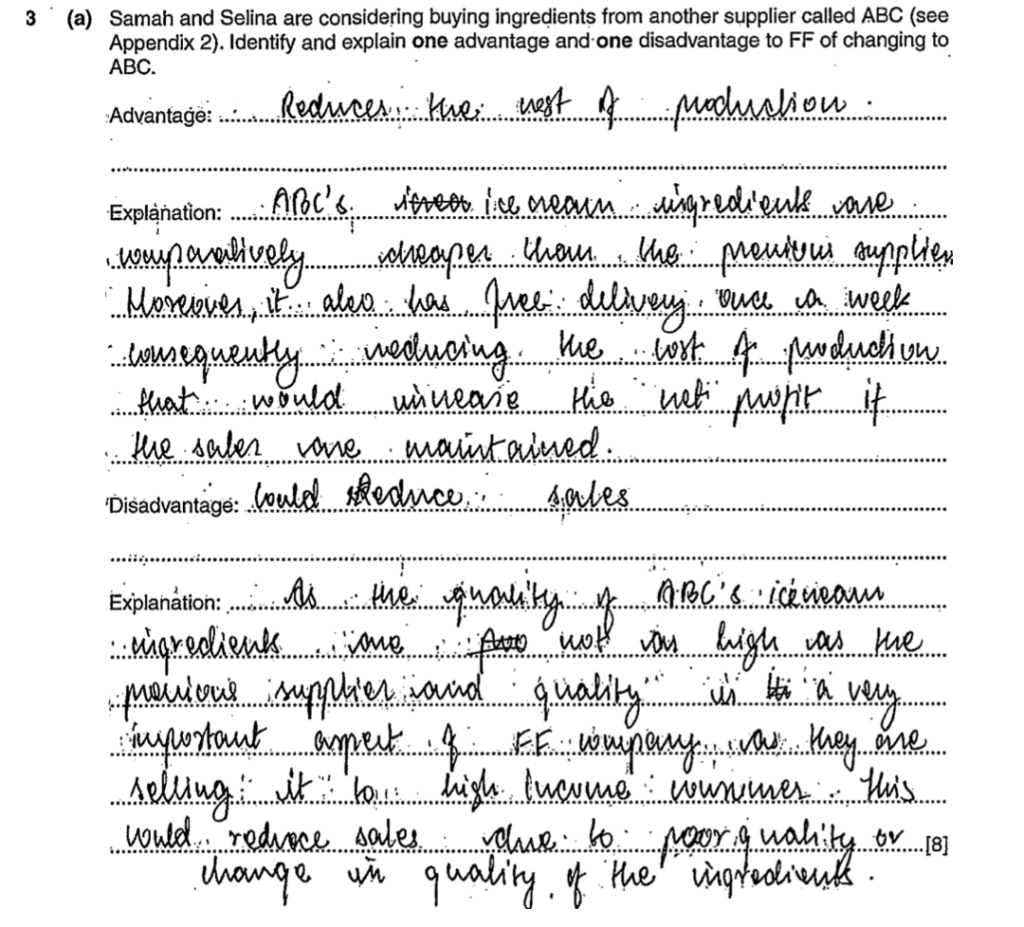 3 (a) Samah and Selina are considering buying ingredients from another supplier called ABC (see
Appendix 2). Identify and explain one advantage and one disadvantage to FF of changing to
ABC.
Advantage: Reduces the cost of production.
Explanation: ABC's ice cream ingredients are
comparatively cheaper than the previous supplier
Moreover, it also has free delivery once a week
consequently reducing the cost of production
that would increase the net profit if
the sales are maintained.
Disadvantage: Could Reduce sales
Explanation: As the quality of ABC's icecream
ingredients are not as high as the
previous supplier and quality is a very
important aspect of FF company as they are
selling it to high income consumer. This
would reduce sales due to poor quality or [8]
change in quality of the ingredients.